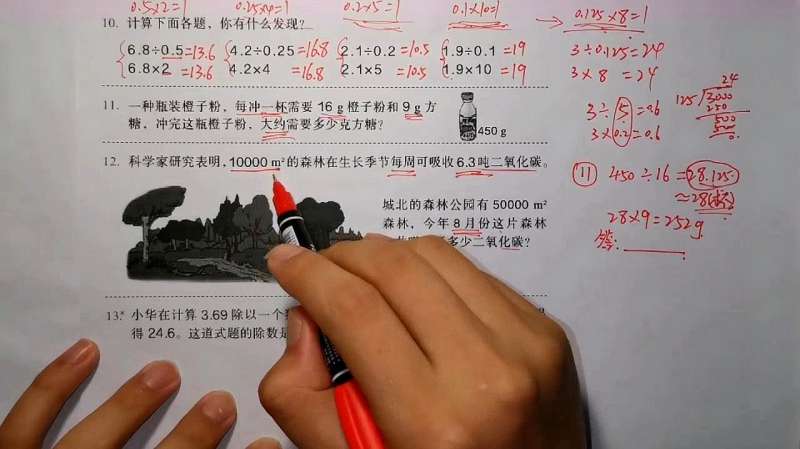 0.5×2=1 0.25×4=1 0.2×5=1 0.1×10=1
→ 0.125×8=1
10. 计算下面各题，你有什么发现？
6.8÷0.5=13.6 4.2÷0.25=16.8 2.1÷0.2=10.5 1.9÷0.1=19
6.8×2=13.6 4.2×4=16.8 2.1×5=10.5 1.9×10=19
3÷0.125=24
3×8=24
24
125 3000
250
500
500
0
3÷5=0.6
3×0.2=0.6
11. 一种瓶装橙子粉，每冲一杯需要 16 g 橙子粉和 9 g 方
糖，冲完这瓶橙子粉，大约需要多少克方糖？
450 g
12. 科学家研究表明，10000 m²的森林在生长季节每周可吸收 6.3 吨二氧化碳。
城北的森林公园有 50000 m²
森林，今年 8 月份这片森林
多少二氧化碳？
11 450÷16=28.125
≈28(杯)
28×9=252g
答：
13.* 小华在计算 3.69 除以一个
得 24.6。这道式题的除数是